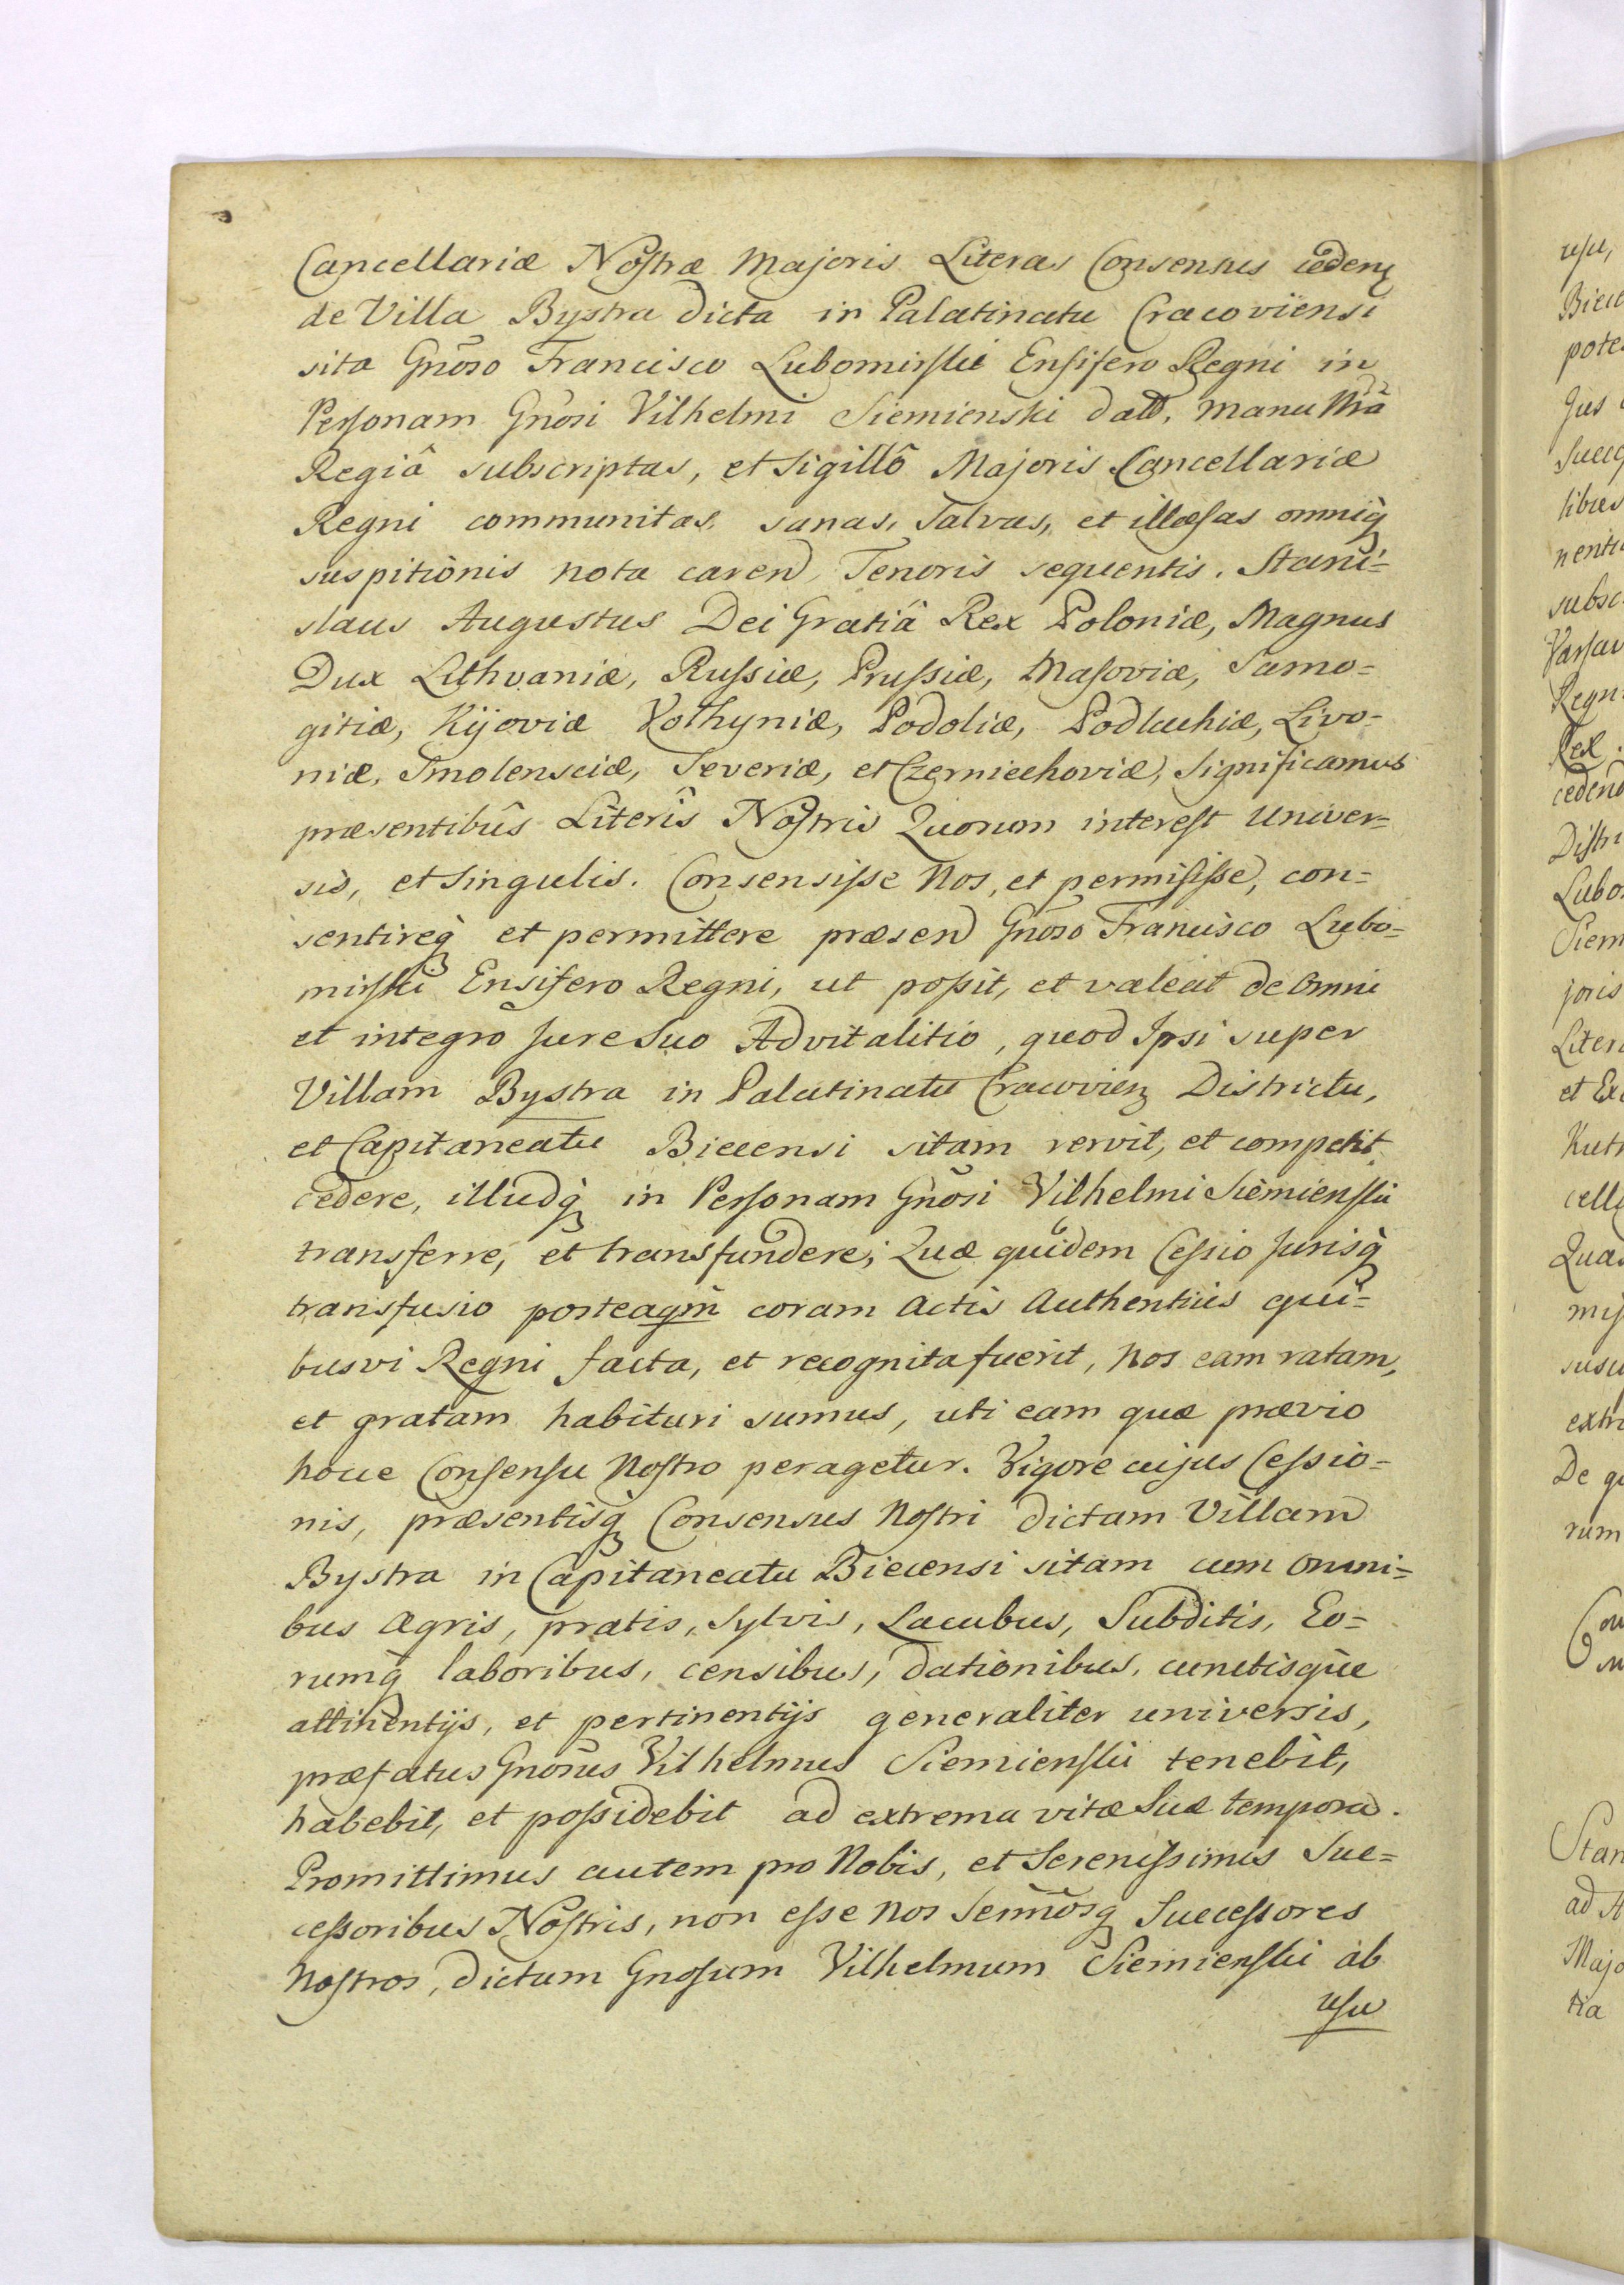 Cancellariæ Nostræ Majoris Literas Consensus cedenꝫ
de Villa Bystra dicta in Palatinatu Cracoviensi
sita Gnõso Francisco Lubomirski Ensifero Regni in
Personam Gnõsi Vilhelmi Siemienski datt, manu Nrã
Regiâ subscriptas, et Sigillô Majoris Cancellariæ
Regni communitas, sanas, Salvas, et illæsas omniq̀
suspitionis nota caren̄d, Tenoris sequentis. Stani=
slaus Augustus Dei Gratiâ Rex Poloniæ, Magnus
Dux Lithvaniæ, Russiæ, Prussiæ, Masoviæ, Samo=
gitiæ, Kijoviæ Volhyniæ, Podoliæ, Podlachiæ, Livo-
niæ, Smolensciæ, Severiæ, et Czerniechoviæ, Significamus
præsentibûs Literîs Nostris Quorum interest univer=
sis, et Singulis. Consensisse Nos, et permisisse, con=
sentireq̀ et permittere præsend Gnõso Francisco Lubo=
mirski Ensifero Regni, ut possit, et valeat de omni
et integro Jure Suo Advitalitio, quod Ipsi super
Villam Bystra in Palatinatu Cracovienꝫ Districtu,
et Capitaneatu Biecensi sitam servit, et competit
cedere, illudq̀ in Personam Gnõsi Vilhelmi Siemienski
transferre, et transfundere; Quæ quidem Cessio Jurisq̀
transfusio posteaqm̃ coram Actis Authenticis qui=
busvi Regni facta, et recognita fuerit, Nos eam ratam,
et gratam habituri sumus, uti eam quæ prævio
hocce Consensu Nostro peragetur. Vigore cujus Cessio=
nis, præsentisq̀ Consensus Nostri dictam Villam
Bystra in Capitaneatu Biecensi sitam cum omni=
bus agris, pratis, Sylvis, Lacubus, Subditis, Eo=
rumq̀ laboribus, censibus, dationibus, cunctisque
attinentijs, et pertinentijs generaliter universis,
præfatus Gnõsus Vilhelmus Siemienski tenebit,
habebit, et possidebit ad extrema vitæ Suæ tempora.
Promittimus autem pro Nobis, et Serenissimis Suc=
cessoribus Nostris, non esse Nos Sermõsq̀ Successores
Nostros, dictum Gnosum Vilhelmum Siemienski ab
usu